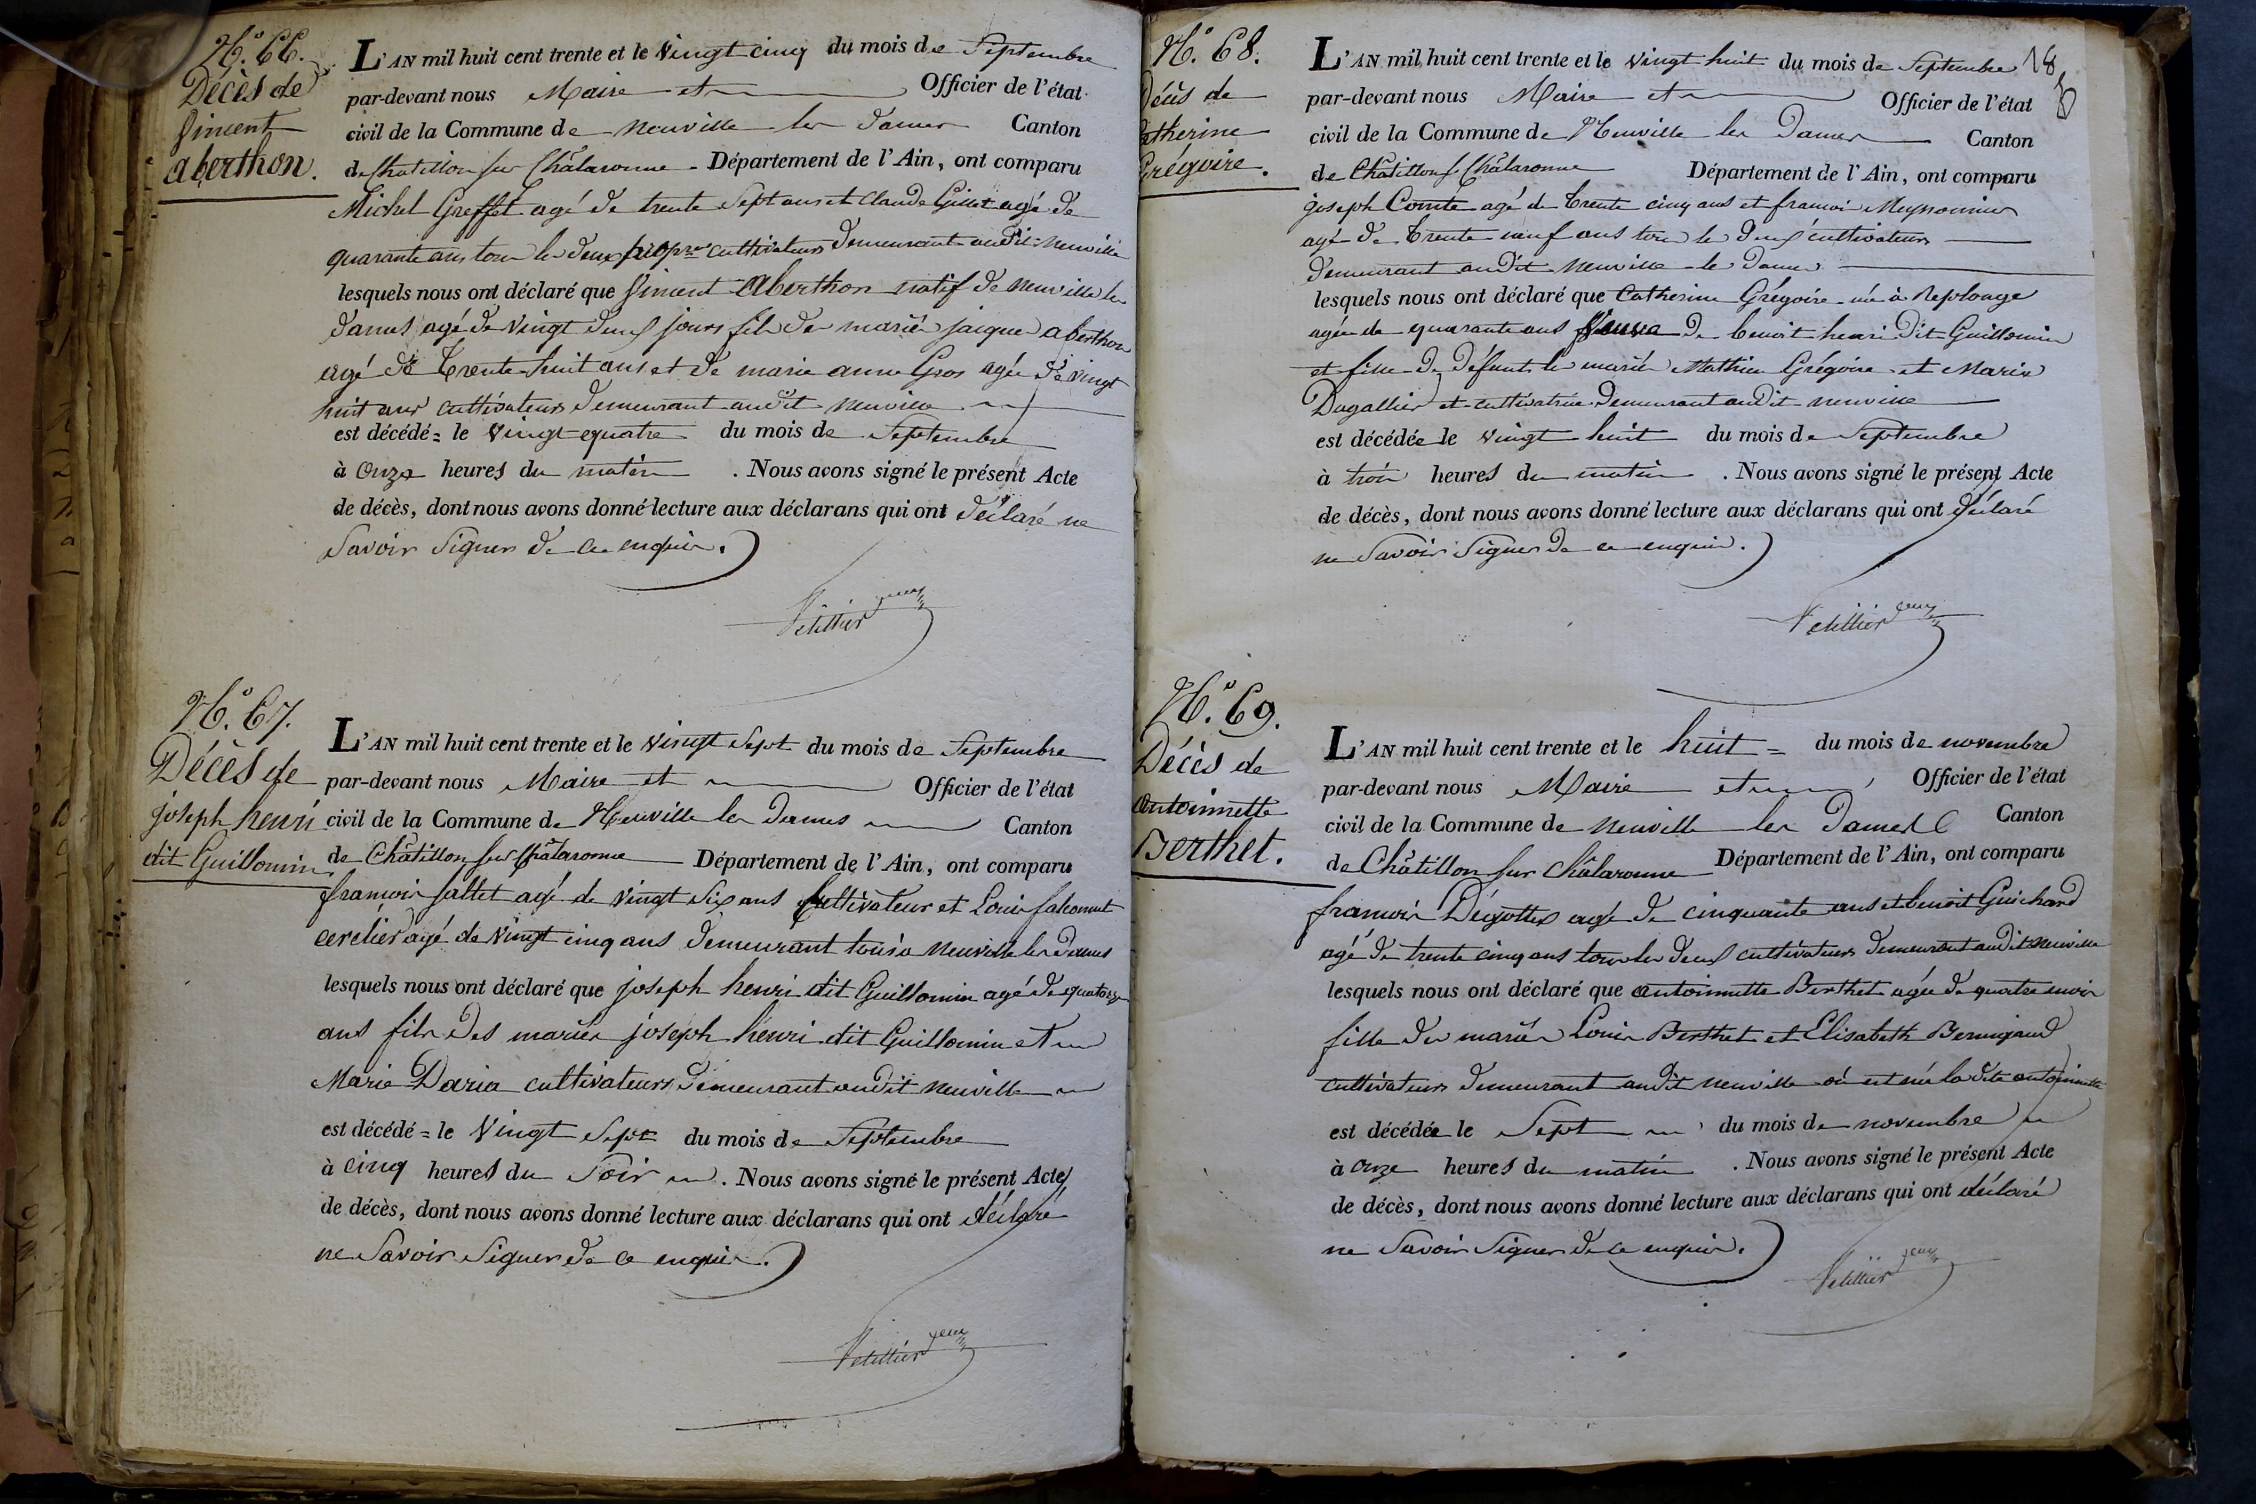 N.° 66.
Décès de
Vincent
aberthon.
L'AN mil huit cent trente et le Vingt cinq du mois de Septembre
par-devant nous Maire et Officier de l'état
civil de la Commune de neuville les dames Canton
de Chatillon sur Châlaronne Département de l'Ain, ont comparu
Michel Greffet agé de trente Sept ans et Claude Gillet agé de
quarante ans tous les deux cultivateurs demeurant audit neuville
lesquels nous ont déclaré que Vincent Aberthon natif de neuville les
dames agé de Vingt deux jours fils des mariés jaique aberthon
agé de trente huit ans et de marie anne Gros agée de vingt
huit ans cultivateurs demeurant audit neuville
est décédé = le Vingt quatre du mois de Septembre
à onze heures du matin . Nous avons signé le présent Acte
de décès, dont nous avons donné lecture aux déclarans qui ont déclaré ne
Savoir Signer de ce enquis.
N.° 67.
Décès de
joseph henri
dit Guillomin
L'AN mil huit cent trente et le Vingt Sept du mois de Septembre
par-devant nous Maire et Officier de l'état
civil de la Commune de Neuville les dames Canton
de Châtillon sur Châlaronne Département de l'Ain, ont comparu
françois fallet agé de vingt Six ans Cultivateur et Louis
cerclier agé de Vingt cinq ans demeurant tous à neuville les dames
lesquels nous ont déclaré que joseph henri dit Guillomin agé de quatorze
ans fils des mariés joseph henri dit Guillomin et
Marie Daria cultivateurs demeurant audit neuville
est décédé = le Vingt Sept du mois de Septembre
à cinq heures du Soir . Nous avons signé le présent Acte
de décès, dont nous avons donné lecture aux déclarans qui ont déclaré
ne Savoir Signer de ce enquis.
N.° 68.
Décès de
Catherine
Grégoire.
L'AN mil huit cent trente et le Vingt huit du mois de Septembre
par-devant nous Maire et Officier de l'état
civil de la Commune de Neuville les Dames Canton
de Châtillon s/ Châlaronne Département de l'Ain, ont comparu
joseph Comte agé de trente cinq ans et françois Meyssonnier
agé de trente neuf ans tous les deux cultivateurs
demeurant audit neuville les dames
lesquels nous ont déclaré que Catherine Grégoire née à Replonge
agée de quarante ans Veuve de benoit henri dit Guillomin
et fille de défunt les mariés Mathieu Grégoire et Marie
Dugallier et cultivatrice demeurant audit neuville
est décédée le vingt huit du mois de Septembre
à trois heures du matin . Nous avons signé le présent Acte
de décès, dont nous avons donné lecture aux déclarans qui ont déclaré
ne Savoir Signer de ce enquis.
N.° 69.
Décès de
antoinnette
Berthet.
L'AN mil huit cent trente et le huit = du mois de novembre
par-devant nous Maire et Officier de l'état
civil de la Commune de neuville les Dames Canton
de Châtillon sur châlaronne Département de l'Ain, ont comparu
françois agé de cinquante ans et benoit Guichard
agé de trente cinq ans tous les deux cultivateurs demeurant audit neuville
lesquels nous ont déclaré que antoinnette Berthet agée de quatre mois
fille des mariés Louis Berthet et Elisabeth
cultivateurs demeurant audit neuville où est née la dite antoinnette
est décédée le Sept du mois de novembre
à onze heures du matin . Nous avons signé le présent Acte
de décès, dont nous avons donné lecture aux déclarans qui ont déclaré
ne Savoir Signer de ce enquis.